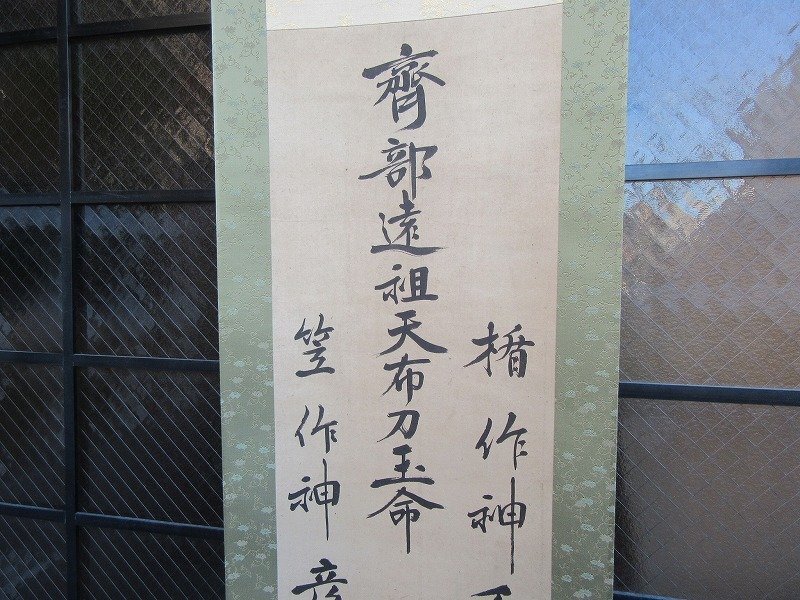 楯作神
齊部遠祖天布刀玉命
笠作神彦